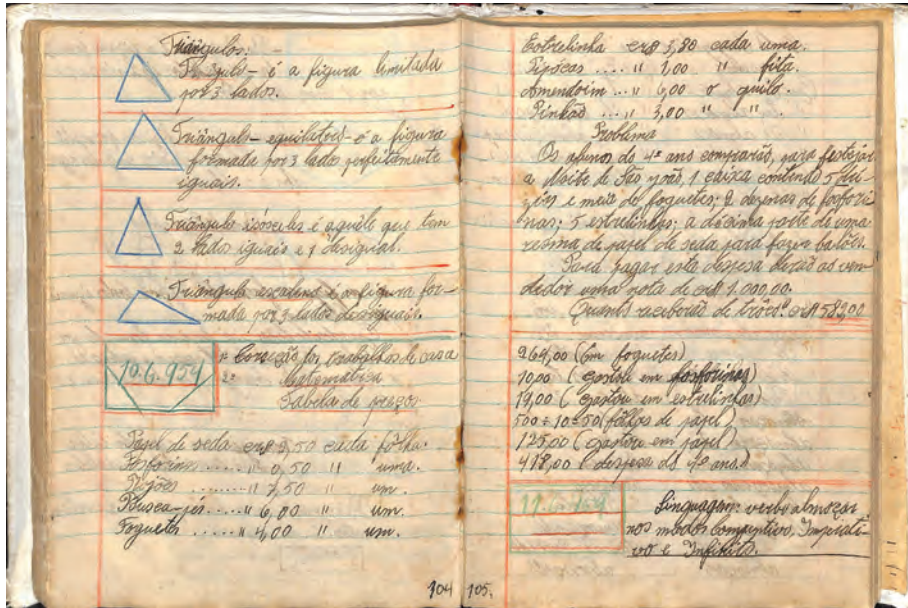 Triângulos:
Triângulo - é a figura limitada
por 3 lados.
Triângulo - equilátero - é a figura
formada por 3 lados perfeitamente
iguais.
Triângulo isósceles é aquêle que tem
2 lados iguais e 1 desigual.
Triângulo escaleno é a figura for-
mada por 3 lados desiguais.
10.6.954
1º Correção dos trabalhos de casa
2º Matemática
Tabela de preços
Papel de seda cr$ 2,50 cada fôlha.
Fosforinas ..... " 0,50 " uma.
....... " 7,50 " um.
Busca-pés .... " 6,00 " um.
Foguetes ...... " 4,00 " um.
104
Estrelinha cr$ 3,80 cada uma.
Pipócas .... " 1,00 " fita.
Amendoim ... " 6,00 o quilo.
Pinhão .... " 3,00 " "
Problima
Os alunos do 4º ano comprarão, para festejar
a Noite de São João, 1 caixa contendo 5 dú-
zias e meia de foguetes; 2 dezenas de fosfori-
nas; 5 estrelinhas; a décima parte de uma
resma de papel de seda para fazer balões.
Para pagar esta despesa darão ao ven-
dedor uma nota de cr$ 1.000,00.
Quanto receberão de trôco? cr$ 582,00
264,00 (Em foguetes)
10,00 (gastou em fosforinas)
19,00 (gastou em estrelinhas)
500 ÷ 10 = 50 (fôlhas de papel)
125,00 (gastou em papel)
418,00 (despesa do 4º ano.)
11.6.954
Linguagem: verbo almoçar
nos modos Imperati-
vo e Infinito.
105.